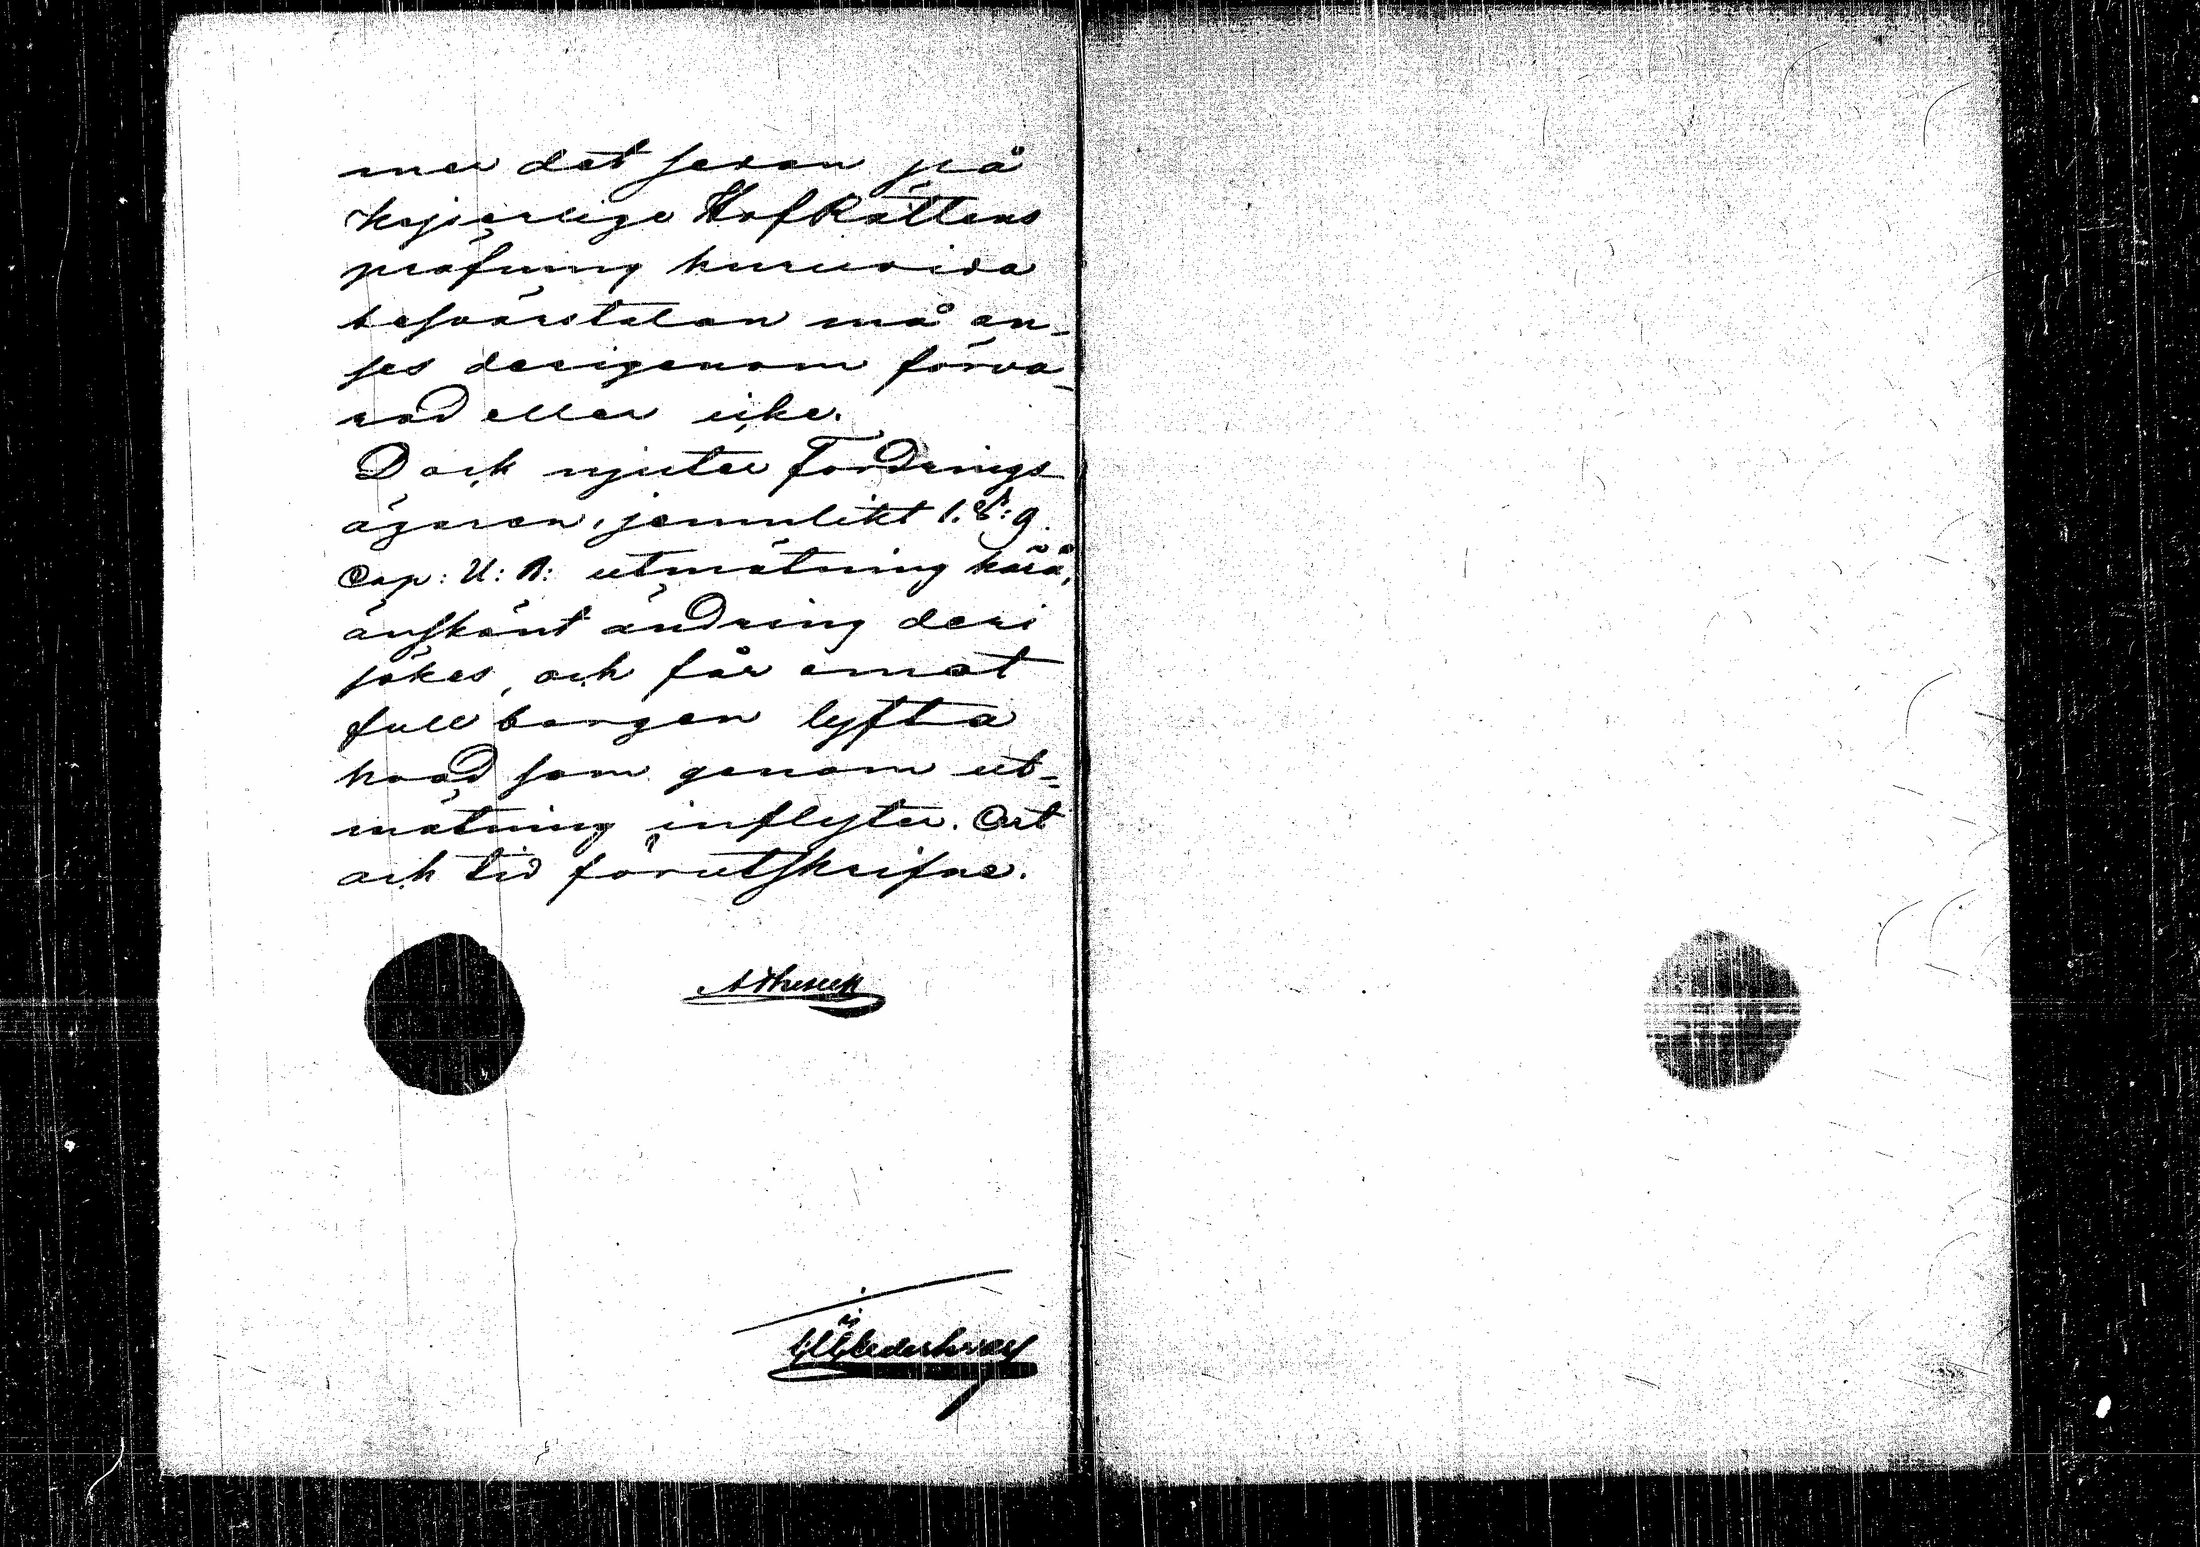 mer det sedan på
Kejserlige HofRättens
pröfning huruvida
besvärstalan må an-
ses derigenom förva-
rad eller icke.
Dock njuter Fordrings
ägaren, jemnlikt 1. §: 9.
Cap: U: B: utmätning härå,
änskönt ändring deri
sökes, och får emot
full borgen lyfta
hvad som genom ut-
mätning inflyter. Ort
och tid förutskrifne.